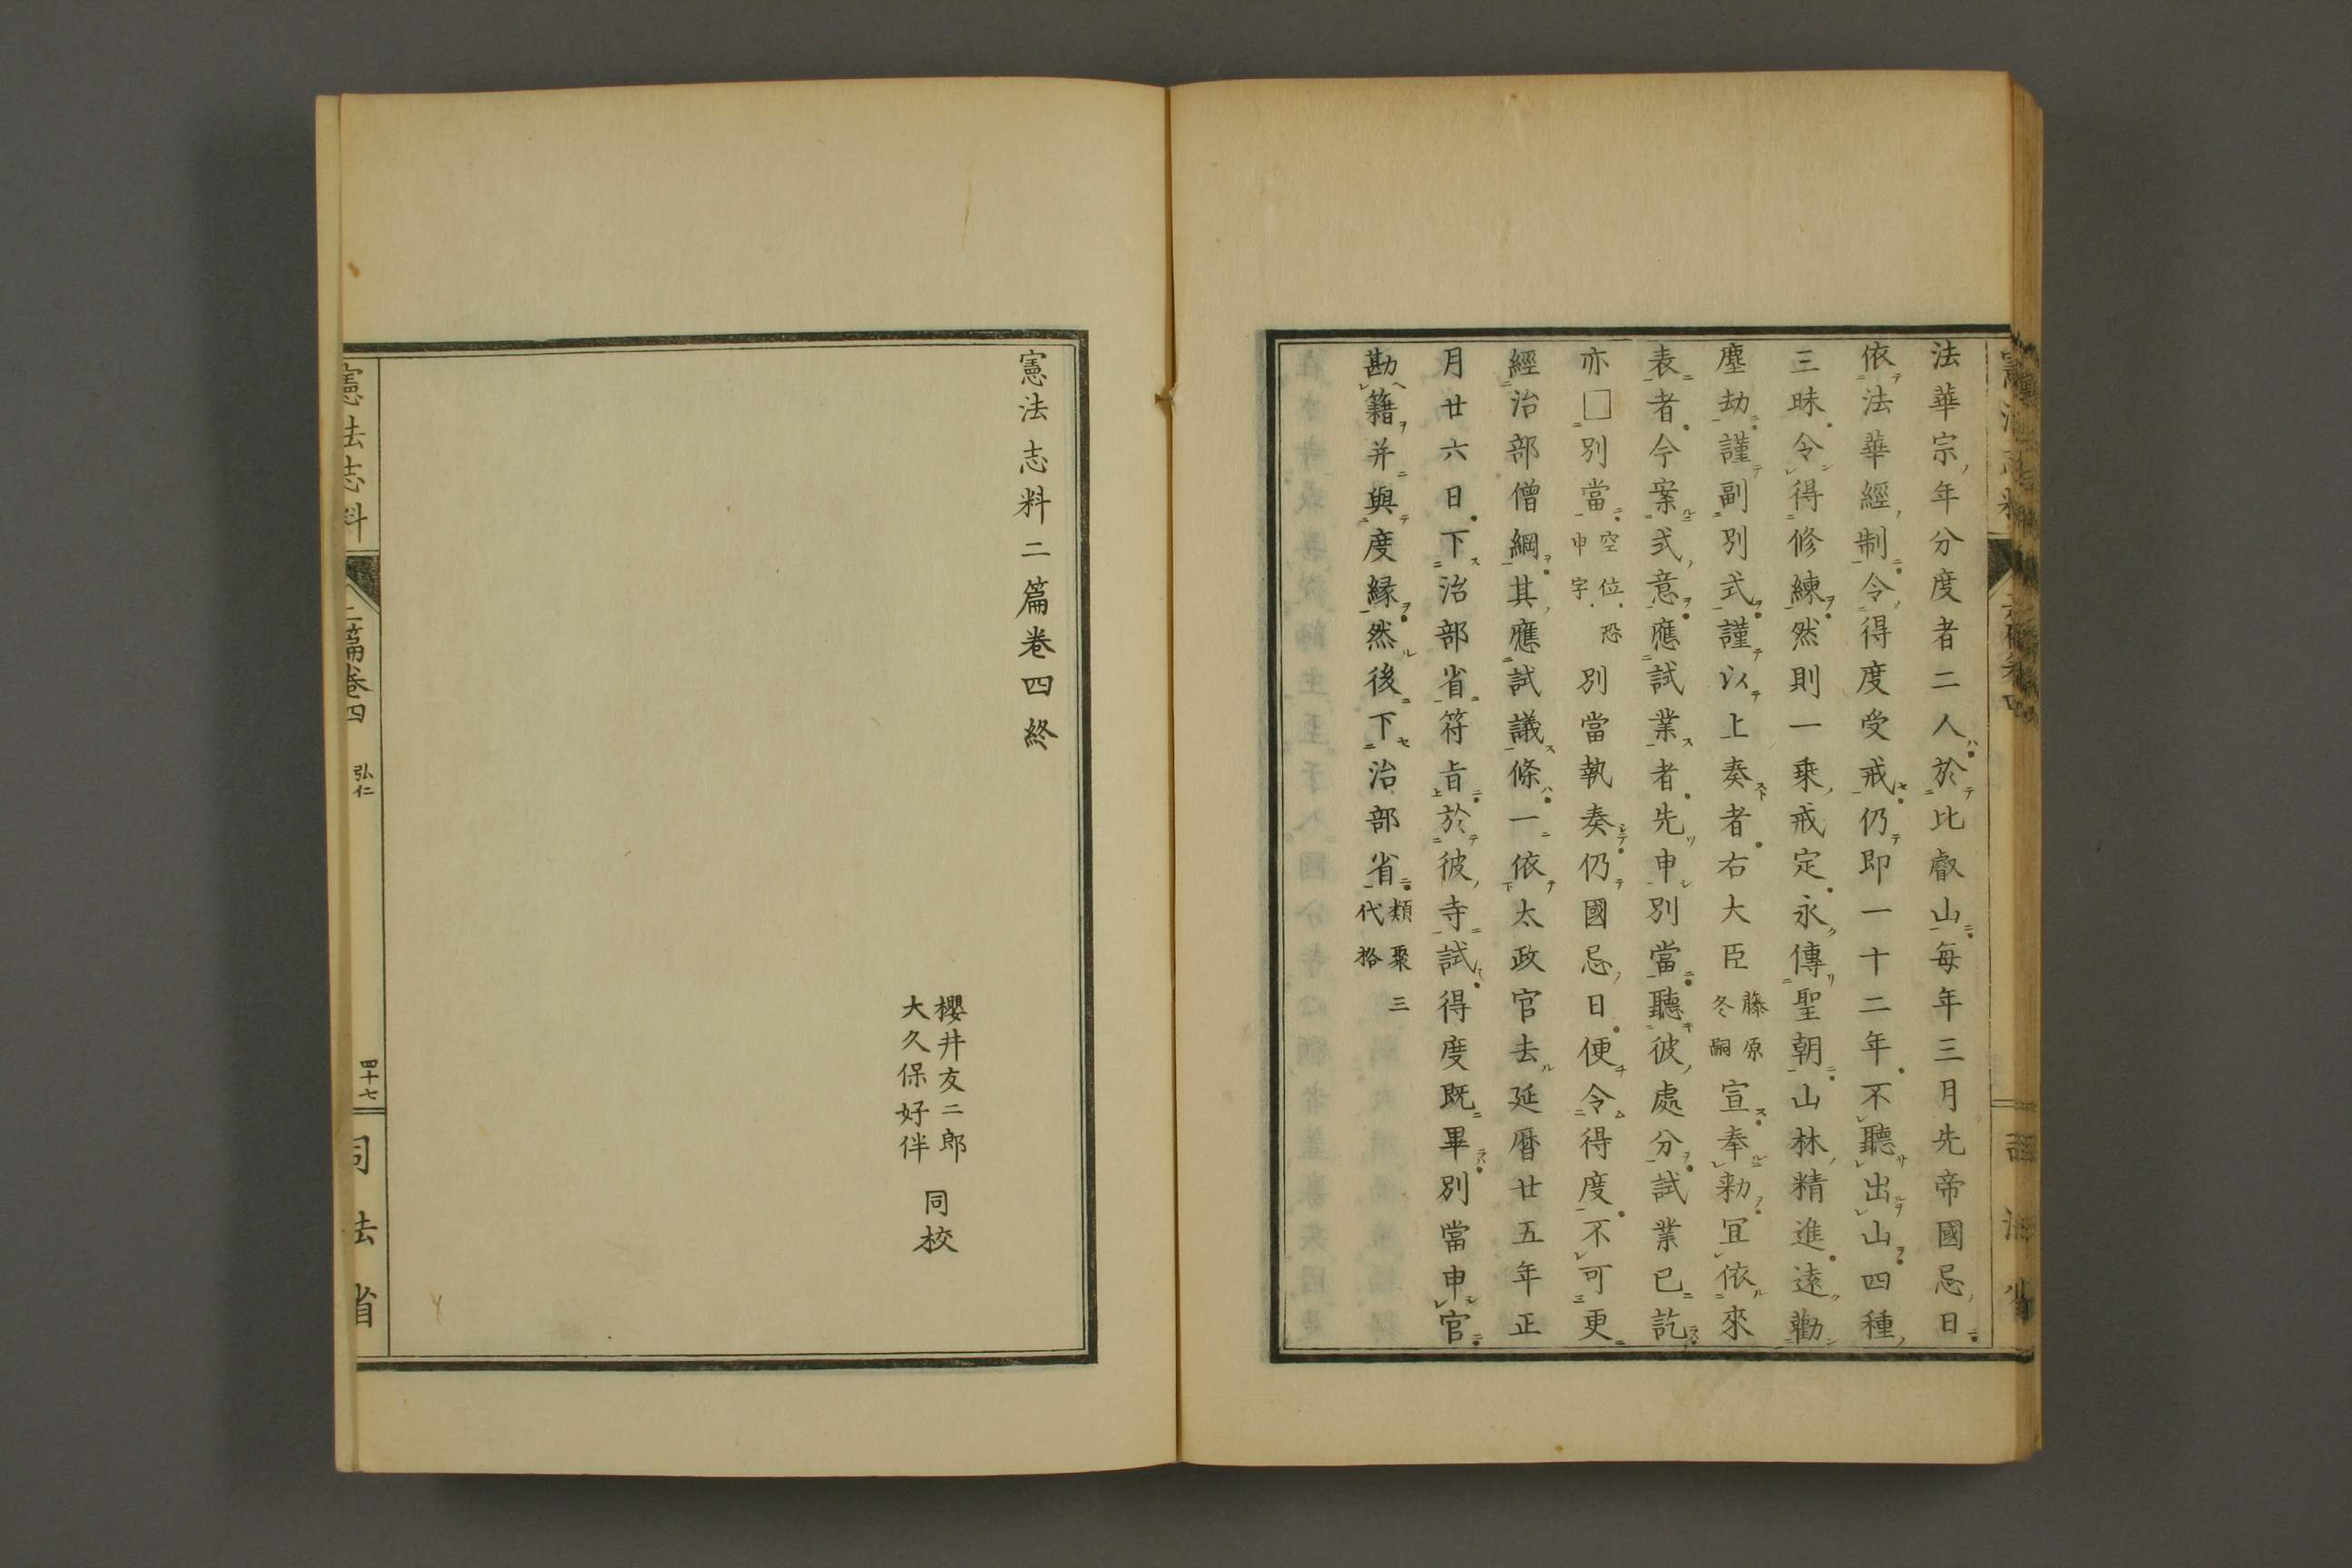 法華宗年分度者二人於比叡山每年三月先帝國忌日
依法華經制令得度受戒仍即一十二年不聽出山四種
三昧令得修練然則一乘戒定永傳聖朝山林精進遠勸
塵劫謹副別式謹以上奏者右大臣藤原冬嗣宣奉勅冝依來
表者今案式意應試業者先申別當聽彼處分試業已訖
亦□別當空位恐申字別當執奏仍國忌日便令得度不可更
經治部僧綱其應試議條一依太政官去延曆廿五年正
月廿六日下治部省符旨於彼寺試得度既畢別當申官
勘籍并與度縁然後下治部省類聚三代格
憲法志料二篇卷四終
櫻井友二郎
大久保好伴
同校
憲法志料
二篇卷四
弘仁
四十七
司法省